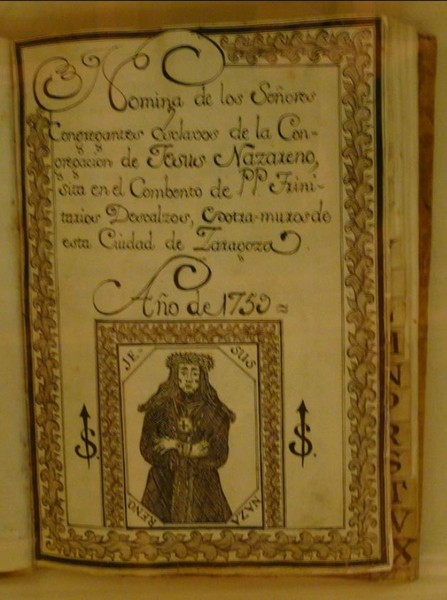 Nomina de los Señores
Congregantes Esclavos de la Con-
gregacion de Jesus Nazareno,
sita en el Combento de PP Trini-
tarios Descalzos, extra-muros de
esta Ciudad de Zaragoza.
Año de 1759
JE-SUS
NAZA
RENO
S
S
N
O
R
S
T
V
X